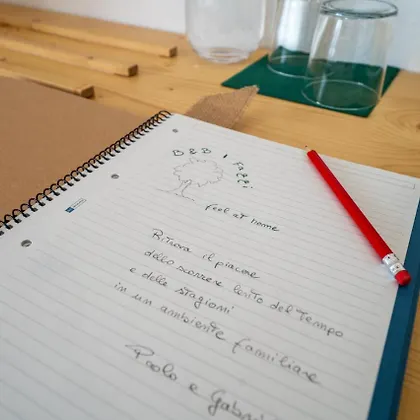 B&B i Faggi
feel at home
Ritrova il piacere
dello scorrere lento del Tempo
e delle stagioni
in un ambiente familiare
Paolo e